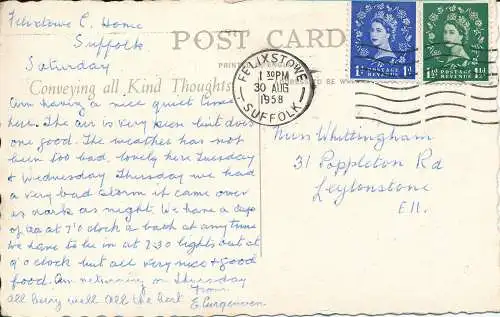 Felixstowe C. Home
Suffolk
Saturday
POST CARD
Conveying all Kind Thoughts
Am having a nice quiet time
here. The air is very keen but does
one good. The weather has not
been too bad, lovely here Tuesday
& Wednesday Thursday we had
a very bad storm it came over
as dark as night. We have a cup
of tea at 7 o'clock a bath at any time
we have to be in at 7.30 lights out at
9 o'clock but all very nice & good
food. Am returning on Thursday
all being well All the best from
E. Curgenven
FELIXSTOWE
1 30 PM
30 AUG
1958
SUFFOLK
1D POSTAGE REVENUE 1D
1½D POSTAGE REVENUE 1½D
Miss Whittingham
31 Poppleton Rd
Leytonstone
E11.